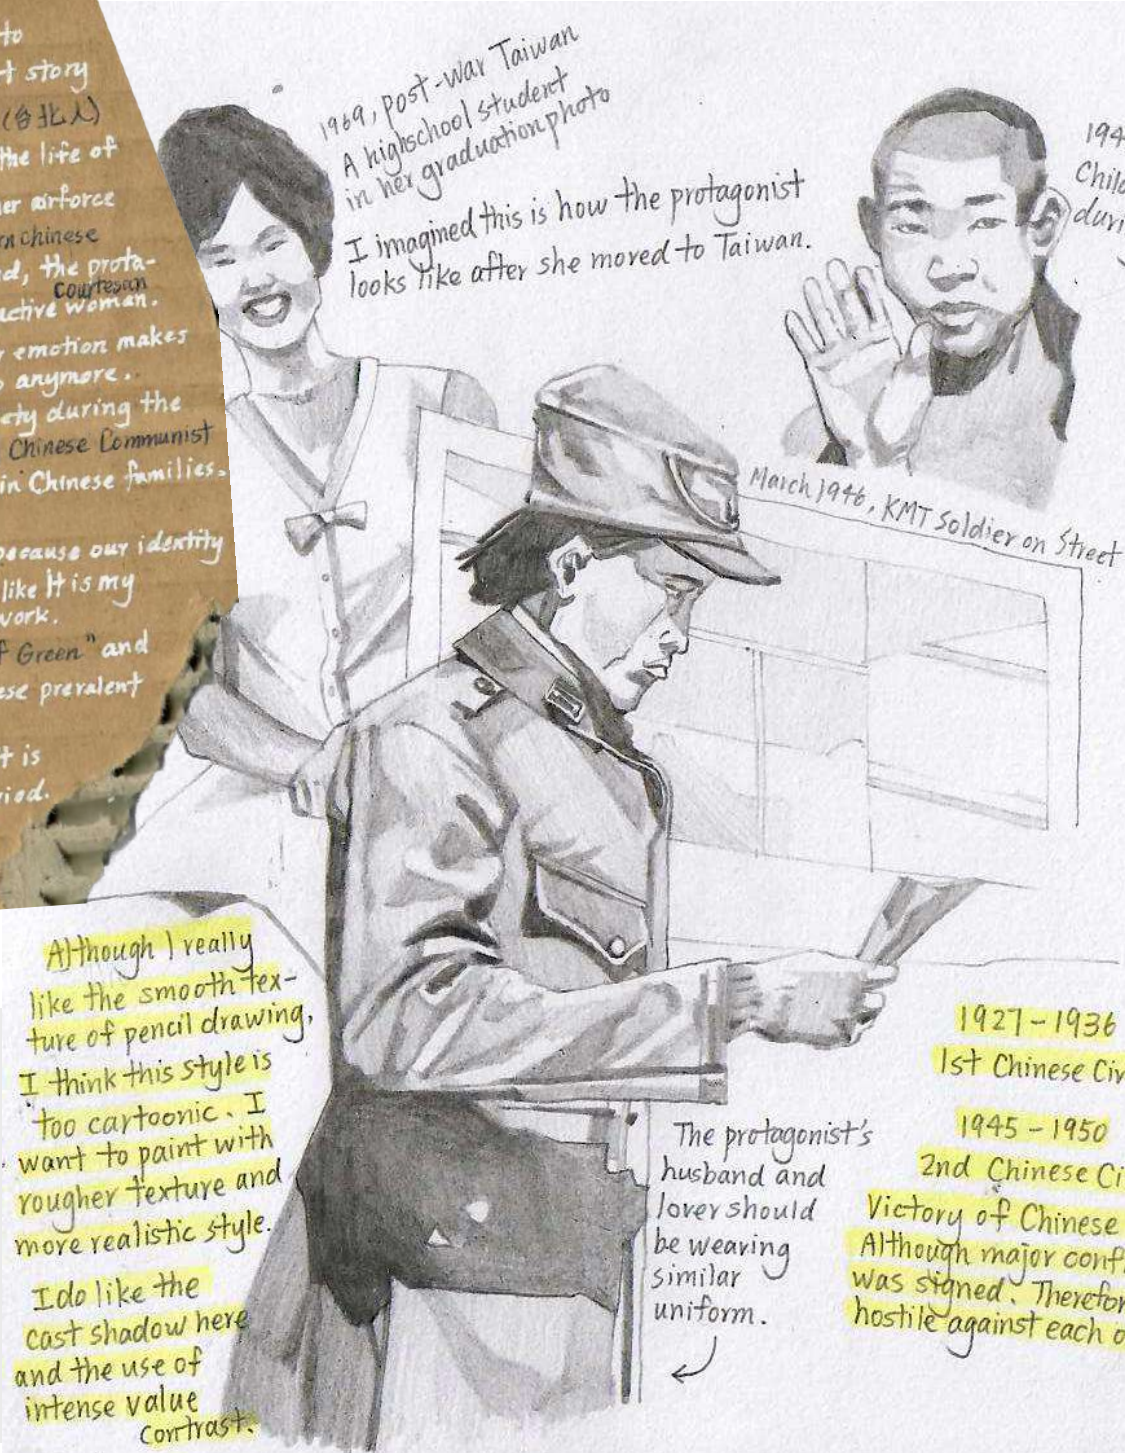 to
t story
(台北人)
the life of
er airforce
rn Chinese
d, the prota-
courtesan
active woman.
emotion makes
anymore.
ety during the
Chinese Communist
in Chinese families.
because our identity
like It is my
work.
f Green" and
ese prevalent
t is
riod.
1969, post-war Taiwan
A highschool student
in her graduation photo
I imagined this is how the protagonist
looks like after she moved to Taiwan.
194
Chil
duri
March 1946, KMT Soldier on Street
Although I really
like the smooth tex-
ture of pencil drawing,
I think this style is
too cartoonic. I
want to paint with
rougher texture and
more realistic style.
I do like the
cast shadow here
and the use of
intense value
contrast.
The protagonist's
husband and
lover should
be wearing
similar
uniform.
1927-1936
1st Chinese Civ
1945-1950
2nd Chinese Ci
Victory of Chinese
Although major conf
was signed. Therefor
hostile against each o